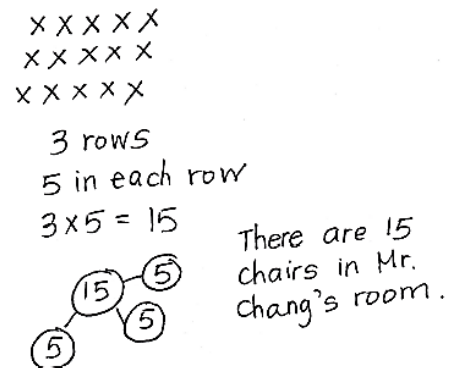 X X X X X
X X X X X
X X X X X
3 rows
5 in each row
3 x 5 = 15
There are 15
chairs in Mr.
Chang's room.
15
5
5
5